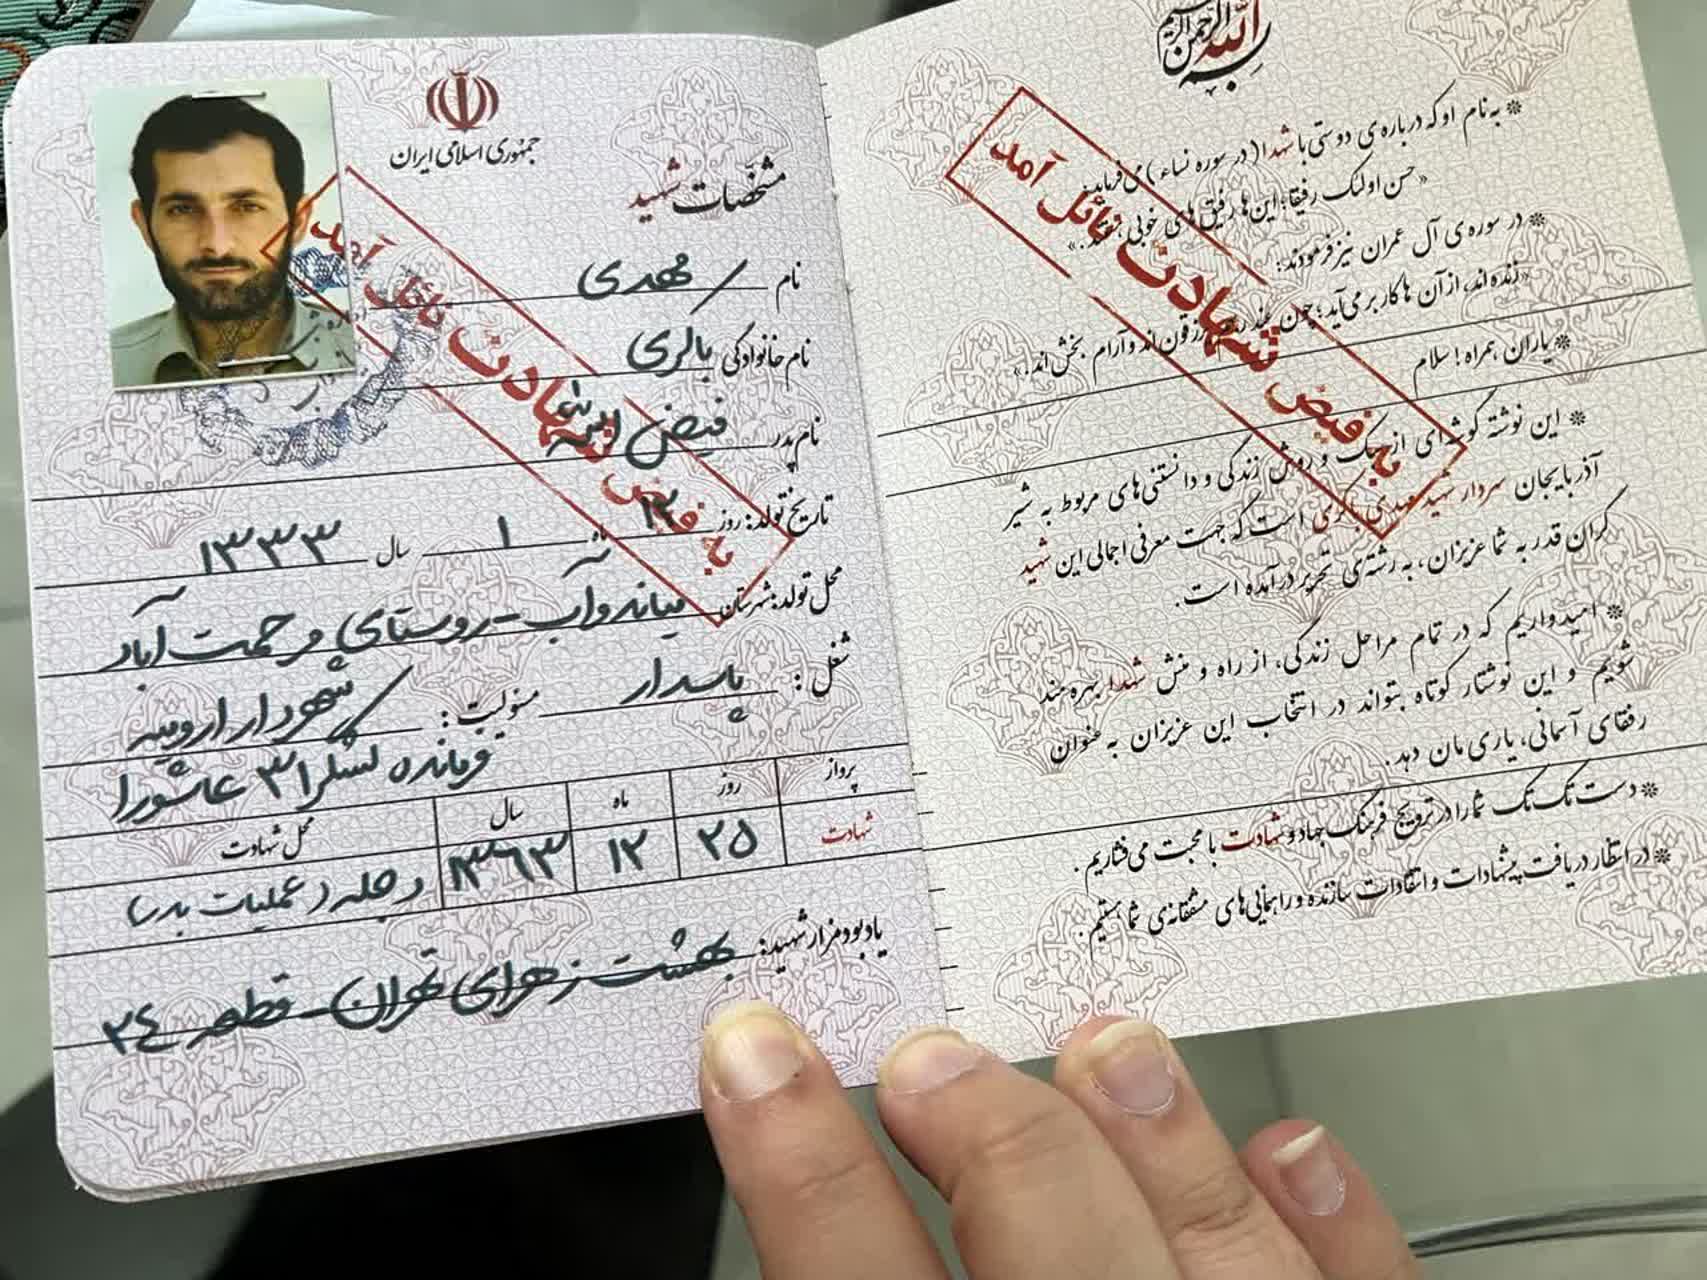 بسم الله الرحمن الرحیم
* به نام او که درباره‌ی دوستی با شهدا (در سوره نساء) می‌فرماید:
«حسن اولئک رفیقا؛ این‌ها رفیق‌های خوبی هستند.»
* در سوره‌ی آل عمران نیز فرمودند:
«زنده‌اند، از آن‌ها کار بر می‌آید؛ چون عند ربهم یرزقون‌اند و آرام بخش‌اند.»
* یاران همراه! سلام
* این نوشته گوشه‌ای از سبک و روش زندگی و دانستنی‌های مربوط به شیر
آذربایجان سردار شهید مهدی باکری است که جهت معرفی اجمالی این شهید
گران قدر به شما عزیزان، به رشته‌ی تحریر درآمده است.
* امیدواریم که در تمام مراحل زندگی، از راه و منش شهدا بهره مند
شویم و این نوشتار کوتاه بتواند در انتخاب این عزیزان به عنوان
رفقای آسمانی، یاری مان دهد.
* دست تک تک شما را در ترویج فرهنگ جهاد و شهادت با محبت می‌فشاریم.
* در انتظار دریافت پیشنهادات و انتقادات سازنده و راهنمایی‌های مشفقانه‌ی شما هستیم.
به فیض شهادت نائل آمد
جمهوری اسلامی ایران
مشخصات شهید
نام مهدی
نام خانوادگی باکری
نام پدر فیض الله
تاریخ تولد: روز ۱۲ ماه ۱ سال ۱۳۳۳
محل تولد: شهرستان میاندوآب - روستای مرحمت آباد
شغل: پاسدار مسئولیت: شهردار ارومیه
فرمانده لشکر ۳۱ عاشورا
پرواز روز ماه سال محل شهادت
شهادت ۲۵ ۱۲ ۱۳۶۳ دجله (عملیات بدر)
یادبود مزار شهید: بهشت زهرای تهران - قطعه ۲۴
به فیض شهادت نائل آمد